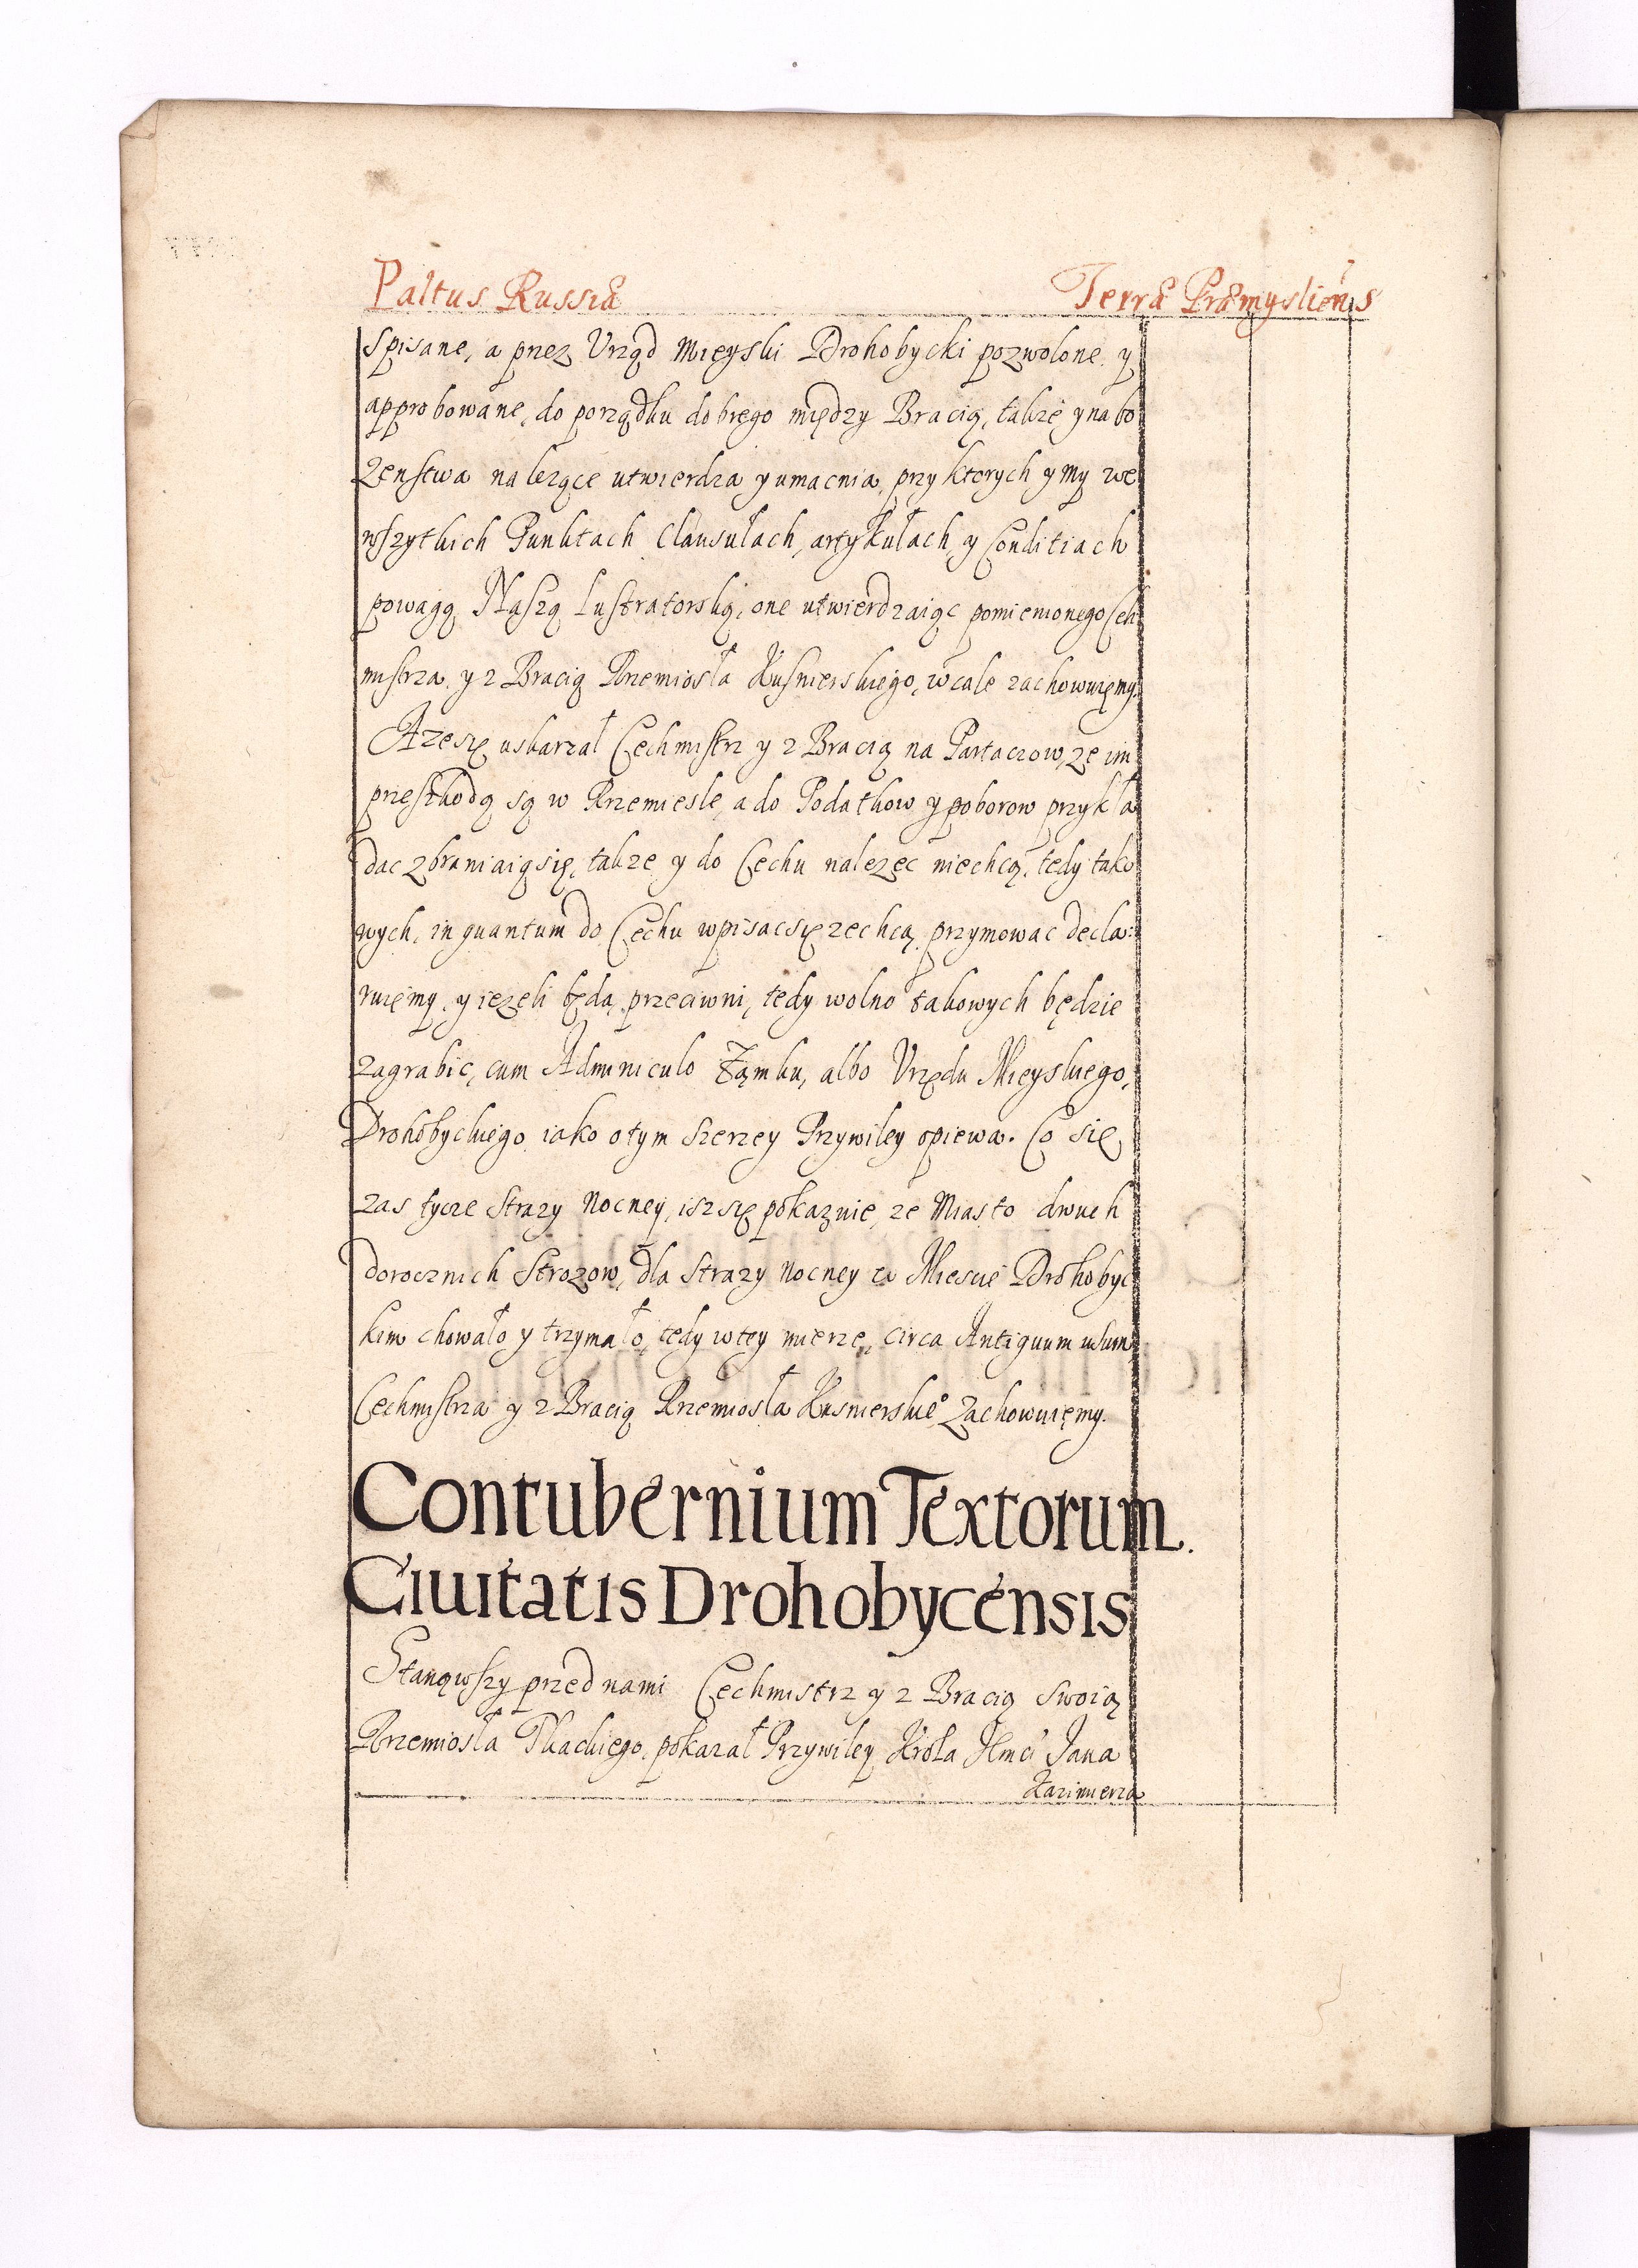 Paltus Russiæ Terræ Præmysliens
spisane, a przez Vrząd Mieyski Drohobycki pozwolone y
approbowane, do porządku dobrego między Bracią, także y nabo
żenstwa nalezące utwierdza y umacnia, przy ktorych y my we
wszytkich Punktach Clausułach, artykułach, y Conditiach
powagą Naszą Lustratorską, one utwierdzaiąc pomienionego Cech
mistrza y z Bracią Rzemiosła Kuśnierskiego, wcale zachowuięmy.
A ze się uskarzał Cechmistrz y z Bracią na Partaczow, ze im
przeszkodą są w Rzemieśle, a do Podatkow y poborow przykła
dac zbraniaią się, takze y do Cechu nalezec niechcą, tedy tako
wych, in quantum do Cechu wpisac się zechcą przymowac decla:
ruięmy, y iezeli będą przeciwni, tedy wolno takowych będzie
zagrabic, cum Adminiculo Zamku, albo Vrzędu Mieyskiego,
Drohobyckiego iako o tym szerzey Przywiley opiewa. Co się
zas tycze Strazy Nocney, isz się pokazuie, ze Miasto dwuch
dorocznich Strozow, dla Strazy Nocney w Miescie Drohobyc
kim chowało y trzymało, tedy w tey mierze, circa Antiquum usum,
Cechmistrza y z Bracią Rzemiosła Kusnierskieº Zachowuięmy.
Contubernium Textorum.
Ciuitatis Drohobycensis
Stanąwszy przed nami Cechmistrz y z Bracią swoią
Rzemiosła Tkackiego, pokazał Przywiley Krola Jmci Jana
Kazimierza